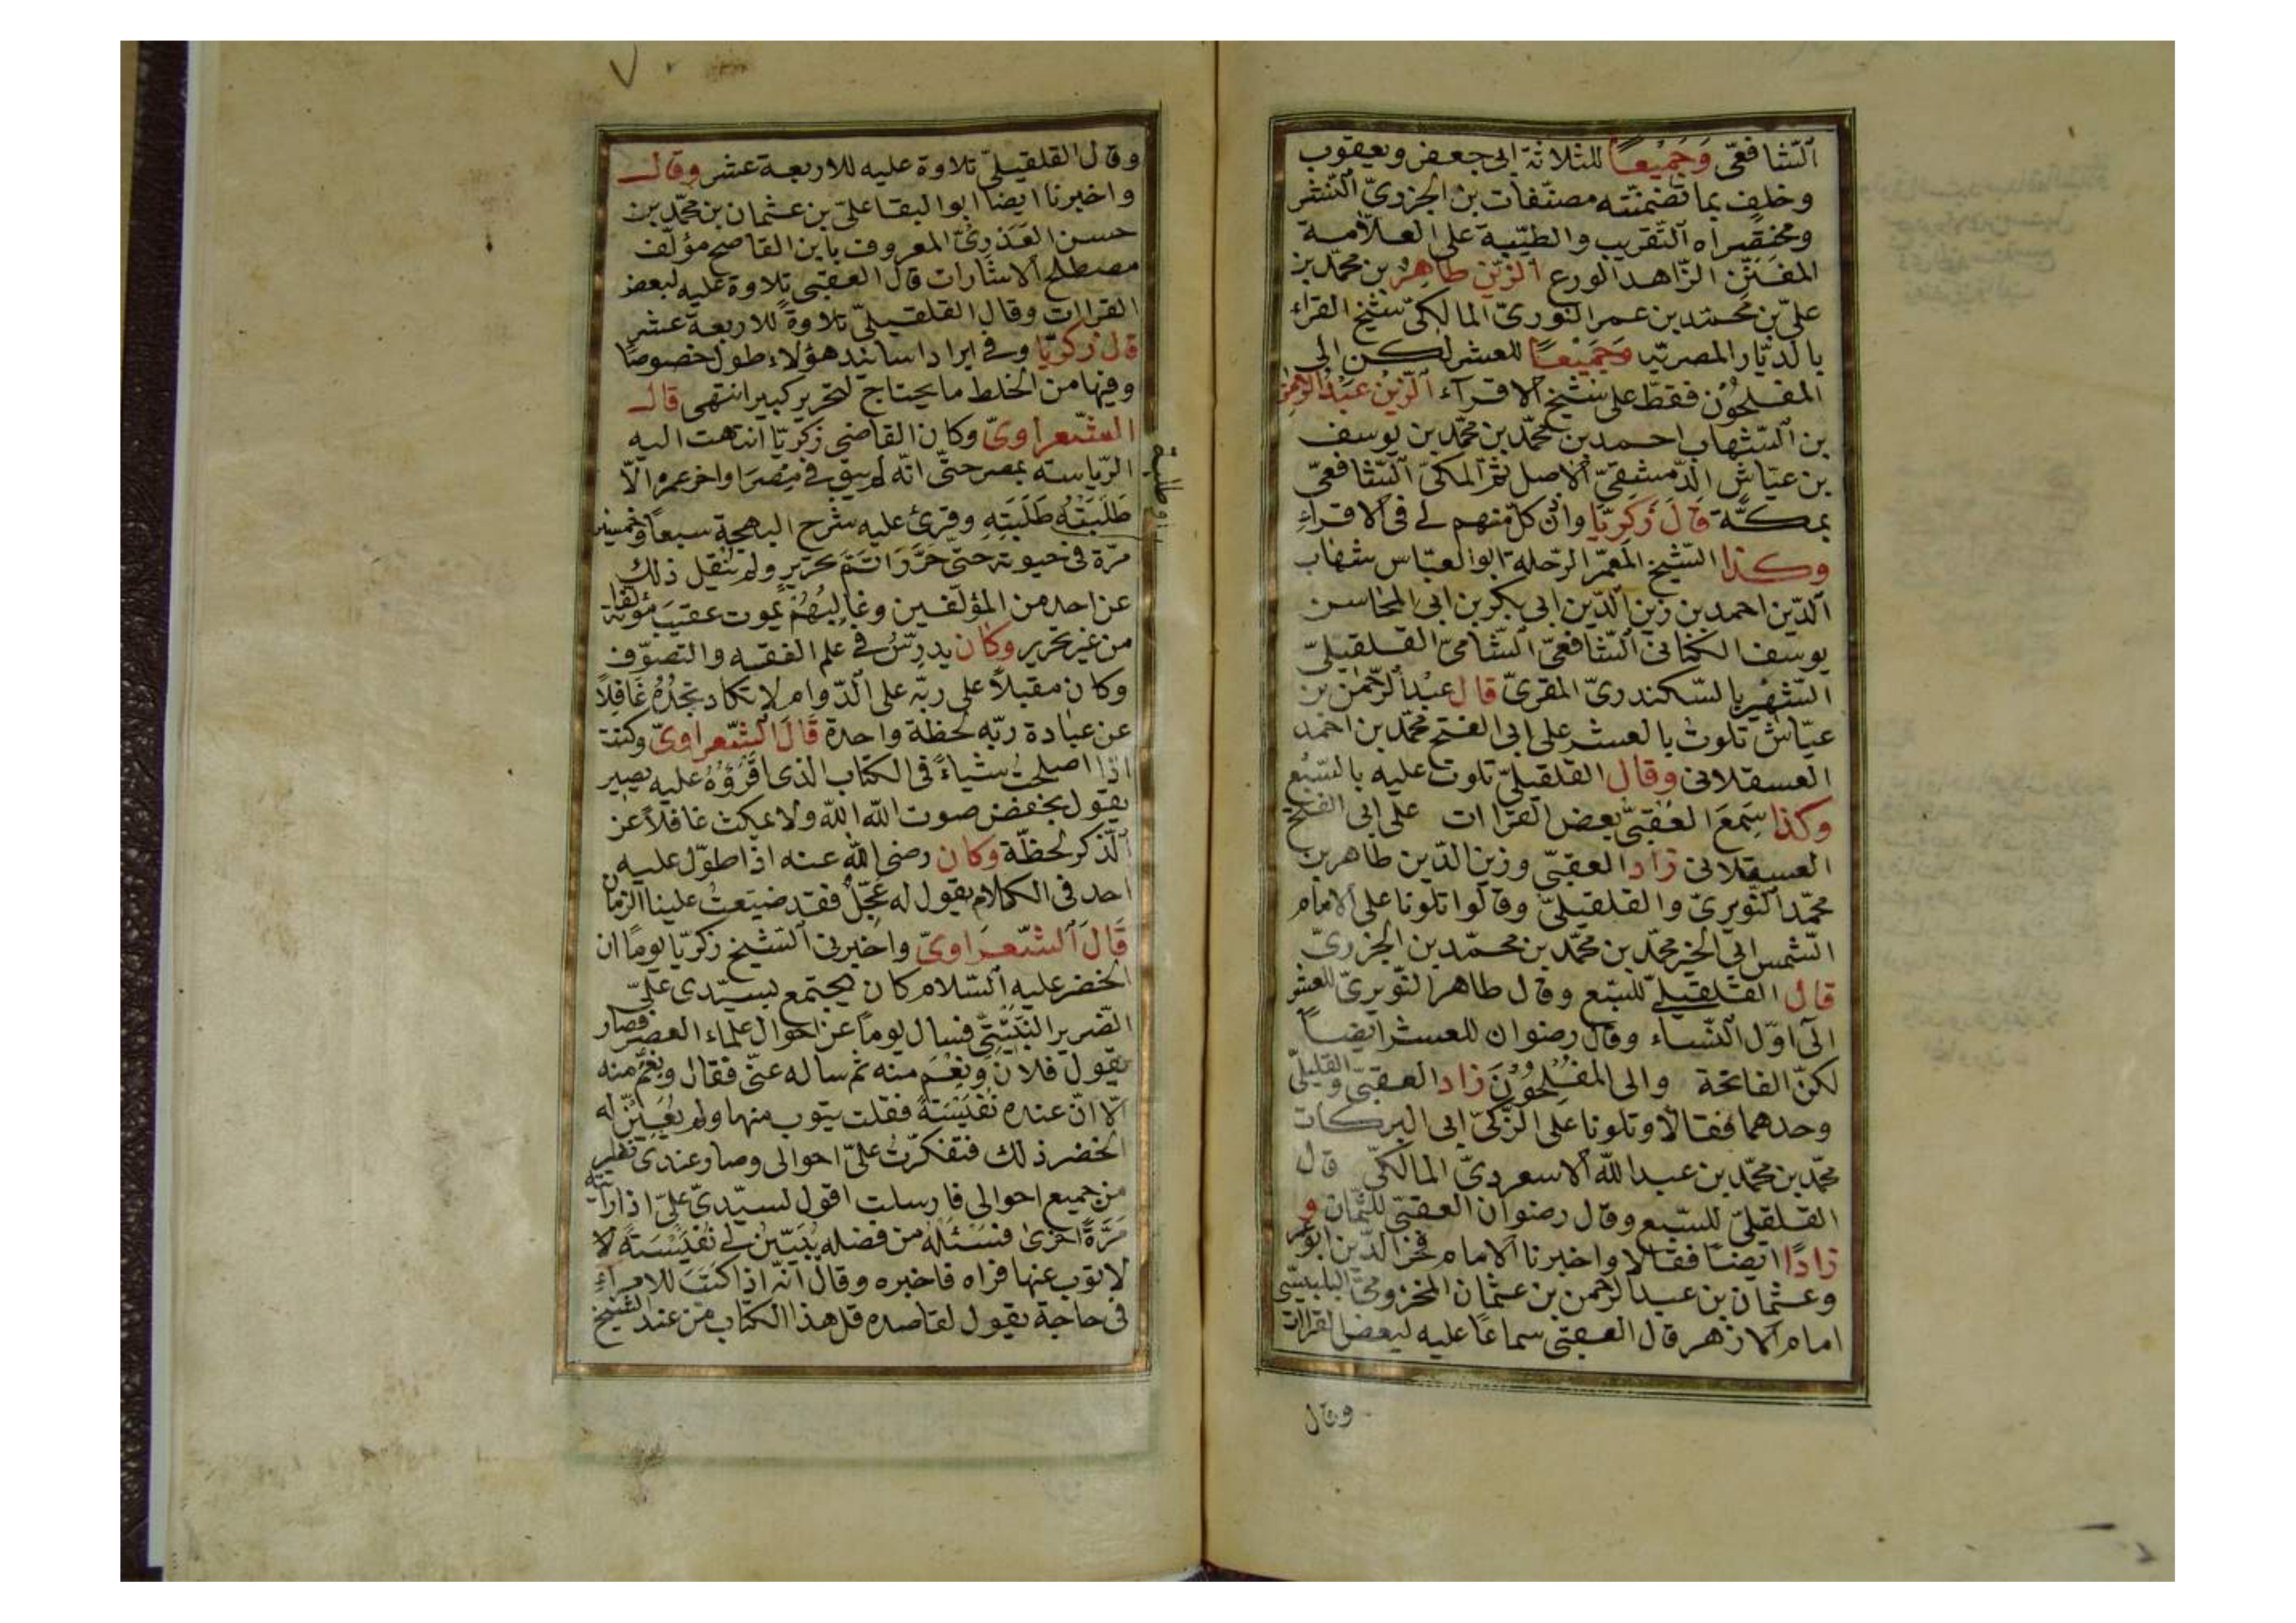 الشافعى وجميعا للثلاثة ابى جعفر ويعقوب
وخلف بما تضمنته مصنفات بن الجزرى النشر
ومختصراه التقريب والطيبة على العلامة
المفنن الزاهد الورع الزين طاهر بن محمد بن
على بن محمد بن عمر النورى المالكى شيخ القراء
بالديار المصريه وجميعا للعشر لكن الى
المفلحون فقط على شيخ الاقرآء الزين عبد الرحمن
بن الشهاب احمد بن محمد بن محمد بن يوسف
بن عياش الدمشقى الاصل ثم المكى الشافعى
بمكة قال زكريا واذن كل منهم لى فى الاقرآء
وكذا الشيخ المعمر الرحلة ابو العباس شهاب
الدين احمد بن زين الدين ابى بكر بن ابى المحاسن
يوسف الكنانى الشافعى الشامى القلقيلى
الشهير بالسكندرى المقرى قال عبد الرحمن بن
عياش تلوت بالعشر على ابى الفتح محمد بن احمد
العسقلانى وقال القلقيلى تلوت عليه بالسبع
وكذا سمع العقبى بعض القراات على ابى الفتح
العسقلانى زاد العقبى وزين الدين طاهر بن
محمد النويرى والقلقيلى وقالوا تلونا على الامام
الشمس ابى الخير محمد بن محمد بن محمد بن الجزرى
قال القلقيلى للسبع وقال طاهر النويرى للعشر
الى اول النساء وقال رضوان للعشر ايضا
لكن الفاتحة والى المفلحون زاد العقبى والقليلى
وحدهما فقالا وتلونا على الزكى ابى البركات
محمد بن محمد بن عبد الله الاسعردى المالكى قال
القلقيلى للسبع وقال رضوان العقبى للثمان و
زادا ايضا فقالا واخبرنا الامام فخر الدين ابو عمر
وعثمان بن عبد الرحمن بن عثمان المخزومى البلبيسى
امام الازهر قال العقبى سماعا عليه لبعض القراات
وقال
٧
وقال القلقيلى تلاوة عليه للاربعة عشر وقال
واخبرنا ايضا ابو البقا على بن عثمان بن محمد بن
حسن العذرى المعروف بابن القاصح مؤلف
مصطلح الاشارات قال العقبى تلاوة عليه لبعض
القراات وقال القلقيلى تلاوة للاربعة عشر
قال زكريا وفى ايراد اسانيد هؤلاء طول خصوصا
وفيها من الخلط ما يحتاج لتحرير كبير انتهى قال
الشعراوى وكان القاضى زكريا انتهت اليه
الرياسة بمصر حتى انه لم يبق فى مصر اواخر عمره الا
طلبته طلبته وقرئ عليه شرح البهجة سبعا وخمسين
او طلبة
مرة فى حيوته حتى حرر اتم تحرير ولم ينقل ذلك
عن احد من المؤلفين وغالبهم يموت عقيب مؤلفاته
من غير تحرير وكان يدرس فى علم الفقه والتصوف
وكان مقبلا على ربه على الدوام لا تكاد تجده غافلا
عن عبادة ربه لحظة واحدة قال الشعراوى وكنت
اذا اصلحت شياء فى الكتاب الذى اقرؤه عليه يصير
يقول بخفض صوت الله الله ولا يمكث غافلا عن
الذكر لحظة وكان رضى الله عنه اذا طول عليه
احد فى الكلام يقول له عجل فقد ضيعت علينا الزمان
قال الشعراوى واخبرنى الشيخ زكريا يوما ان
الخضر عليه السلام كان يجتمع بسيدى على
الضرير النبتيتى فسال يوما عن احوال علماء العصر فصار
يقول فلان ونعم منه ثم ساله عنى فقال ونعم منه
الا ان عنده نفيسة فقلت يتوب منها ولم يعين له
الخضر ذلك فتفكرت على احوالى وصار عندى تطير
من جميع احوالى فارسلت اقول لسيدى على اذا رايته
مرة اخرى فنسئله من فضله يبين لى نفيسته لا
لاتوب عنها فراه فاخبره وقال انه اذا كتب للامراء
فى حاجة يقول لقاصده قل هذا الكتاب من عند الشيخ